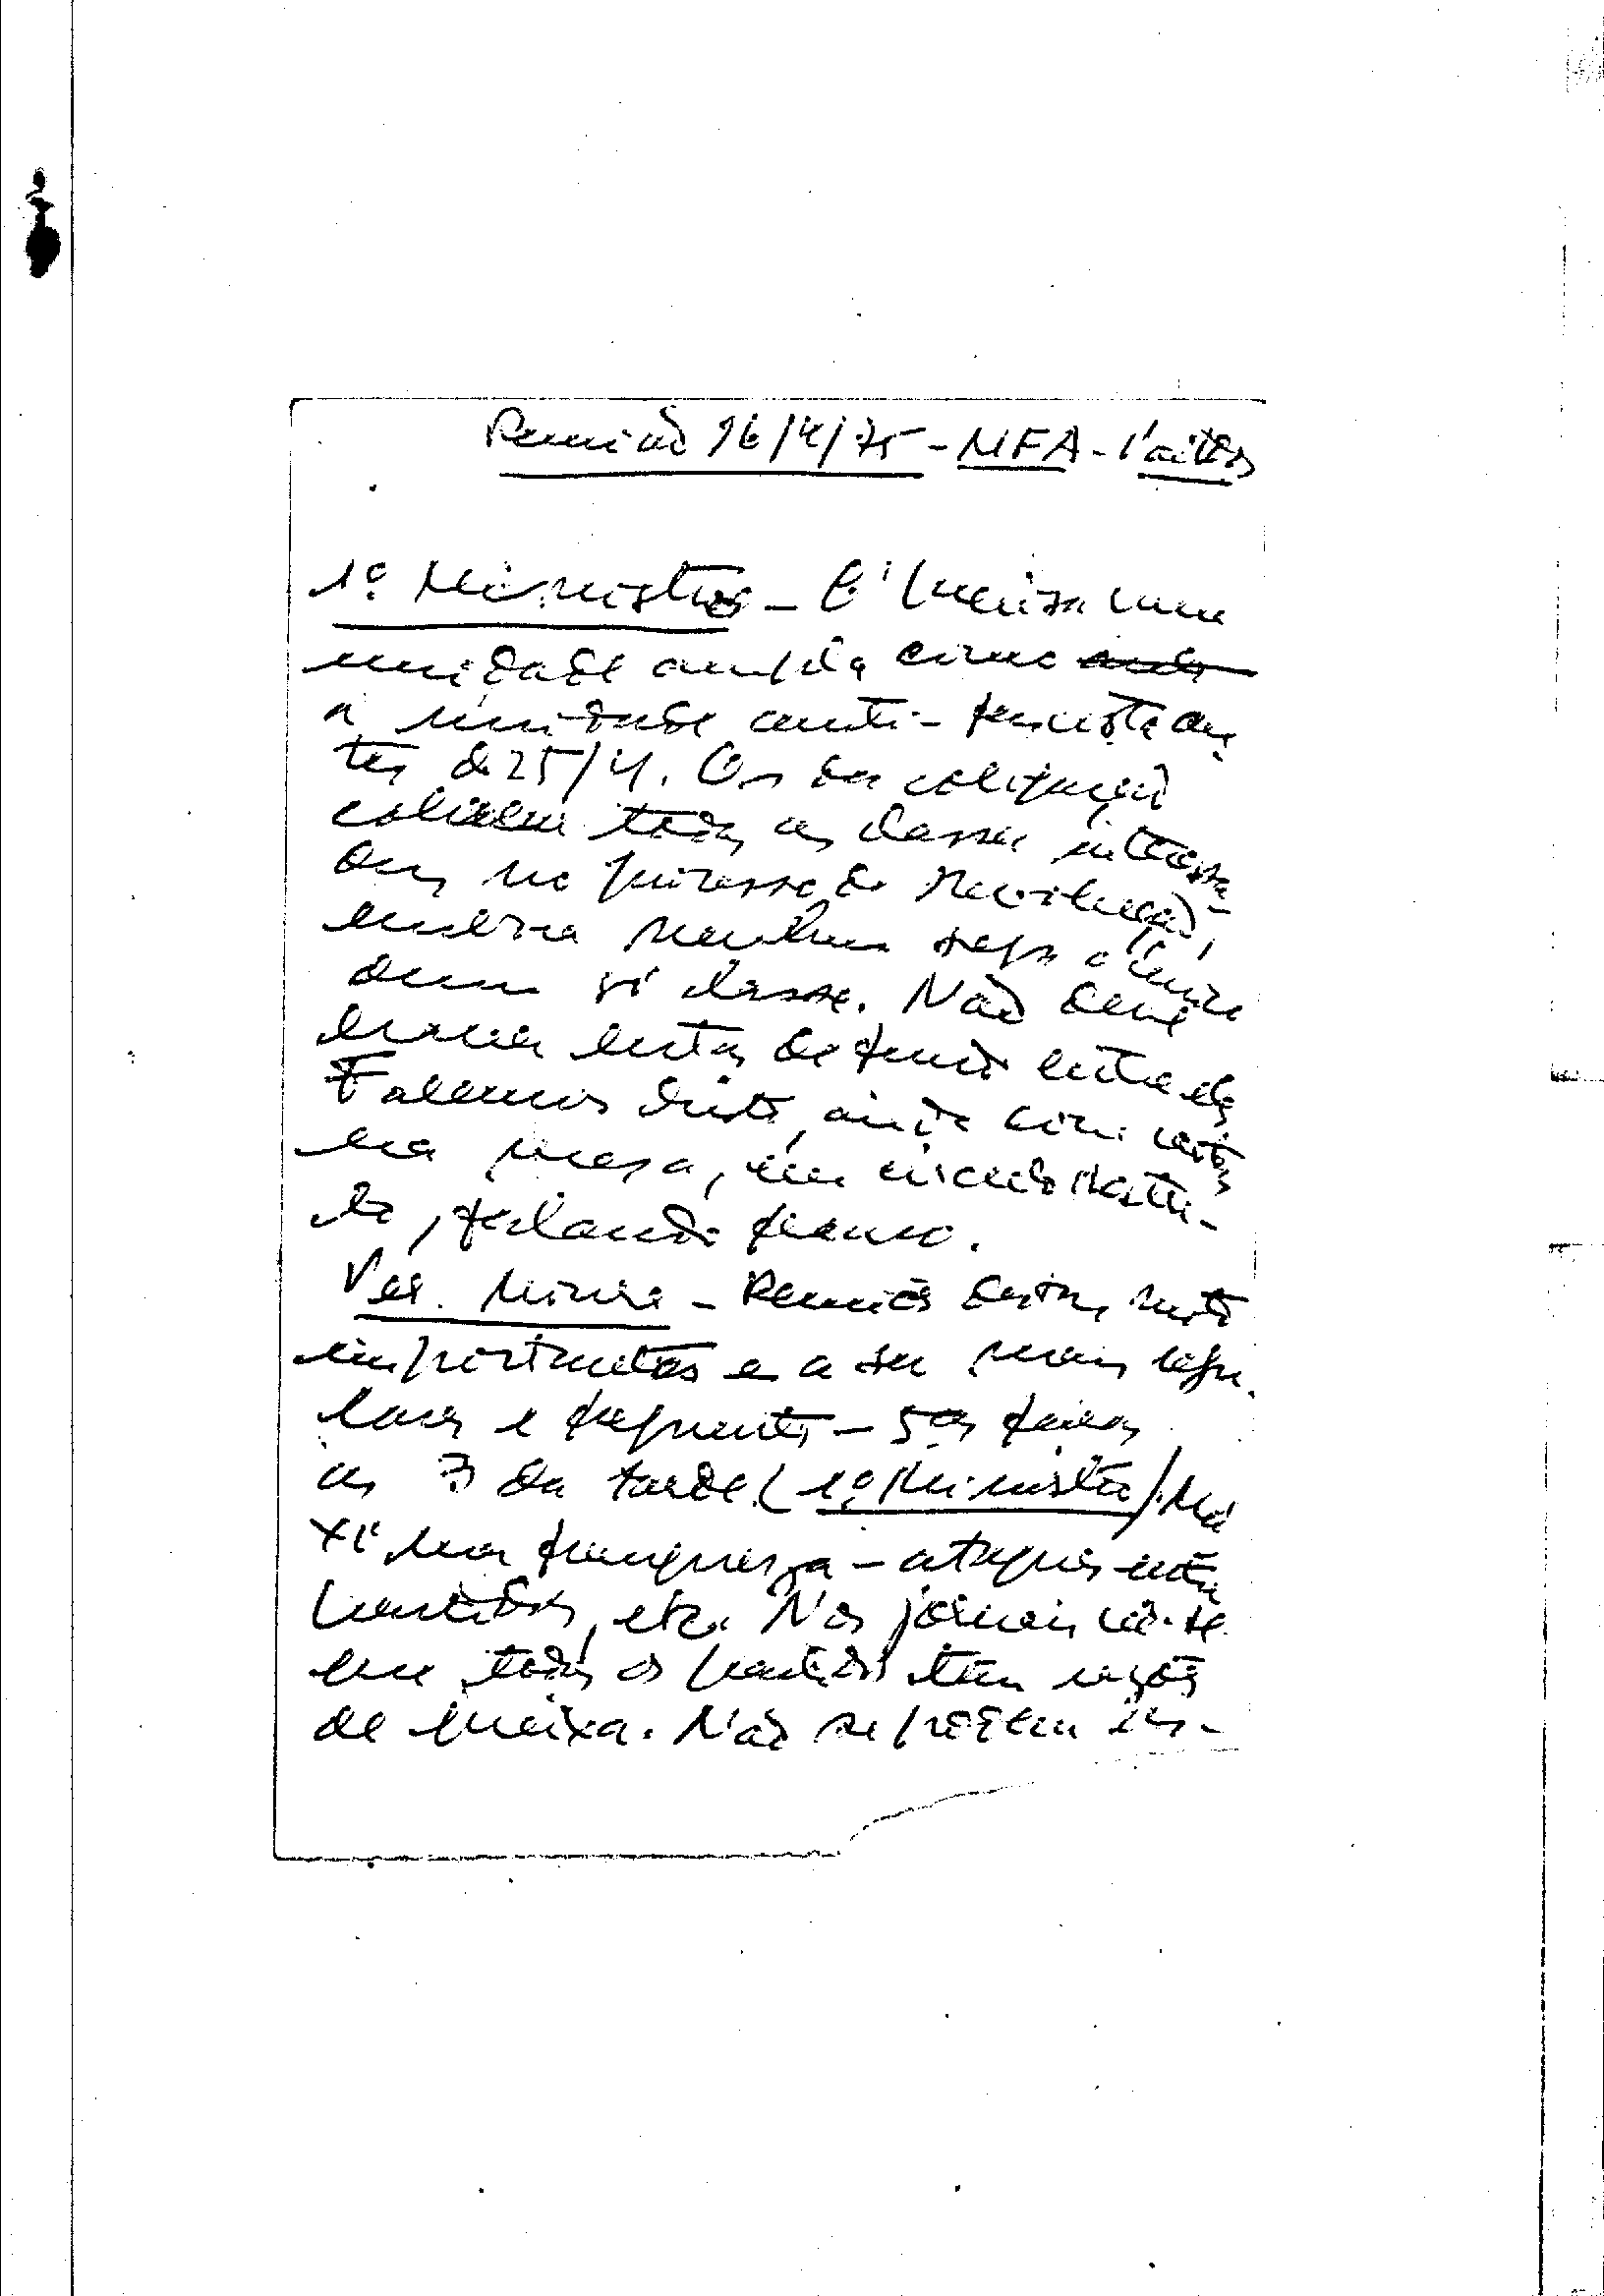 Reunião 16/4/75 - MFA - P'artidos
1º Ministro - É precisa uma
unidade ampla como
a unidade anti-fascista an
tes de 25/4. Os da coligação
cobrem todas as classes interessa-
das no processo da Revolução,
embora nenhum seja o único
duma só classe. Não deve
haver lutas de fundo entre eles
Falemos disto, ainda com
na mesa,
do, falando franco.
Ver. Mirra - Reuniões destas, muito
importantes e a ser mais regu-
lares e frequentes - 5as feiras
às 3 da tarde (1º Ministro). Má
xima franqueza - ataques entre
partidos, etc. Nos jornais vê-se
que todos os partidos têm razões
de queixa. Não se podem